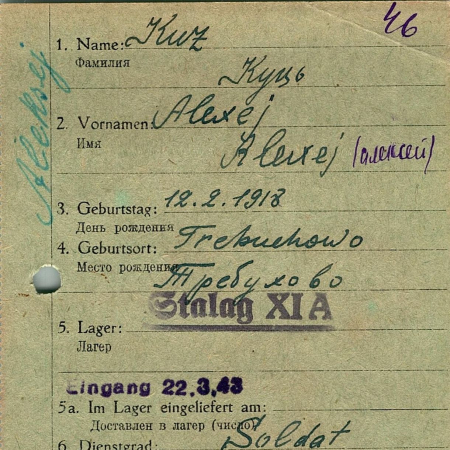 46
Aleksej
1. Name: Kuz
Фамилия
Куць
2. Vornamen: Alexej
Имя
Alexej (алексей)
3. Geburtstag: 12.2.1918
День рождения
4. Geburtsort: Trebuchowo
Место рождения
Требухово
Stalag XI A
5. Lager:
Лагерь
Eingang 22.3.43
5a. Im Lager eingeliefert am:
Доставлен в лагерь (число)
6. Dienstgrad: Soldat